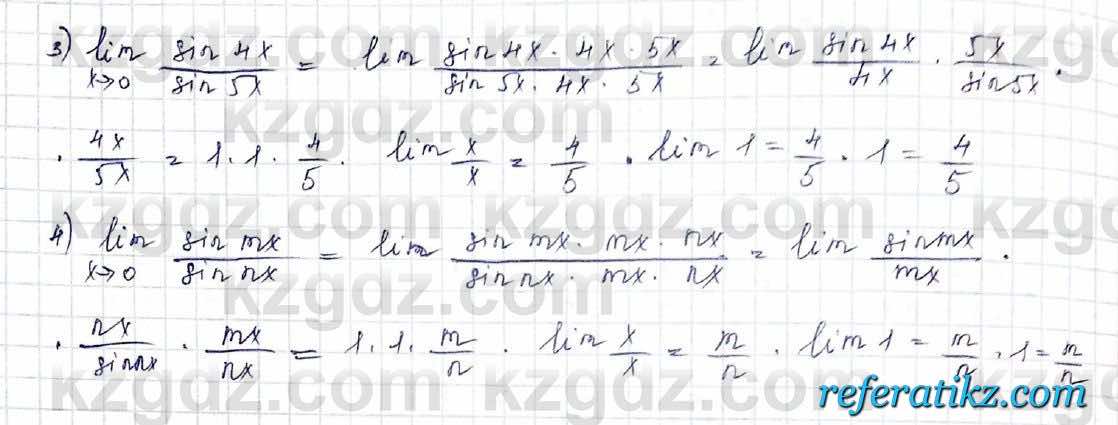 3) lim x→0 sin 4x / sin 5x = lim sin 4x · 4x · 5x / sin 5x · 4x · 5x = lim sin 4x / 4x · 5x / sin 5x ·
· 4x / 5x = 1 · 1 · 4/5 · lim x/x = 4/5 · lim 1 = 4/5 · 1 = 4/5
4) lim x→0 sin mx / sin nx = lim sin mx · mx · nx / sin nx · mx · nx = lim sin mx / mx ·
· nx / sin nx · mx / nx = 1 · 1 · m/n · lim x/x = m/n · lim 1 = m/n · 1 = m/n
kzgdz.com
referatikz.com